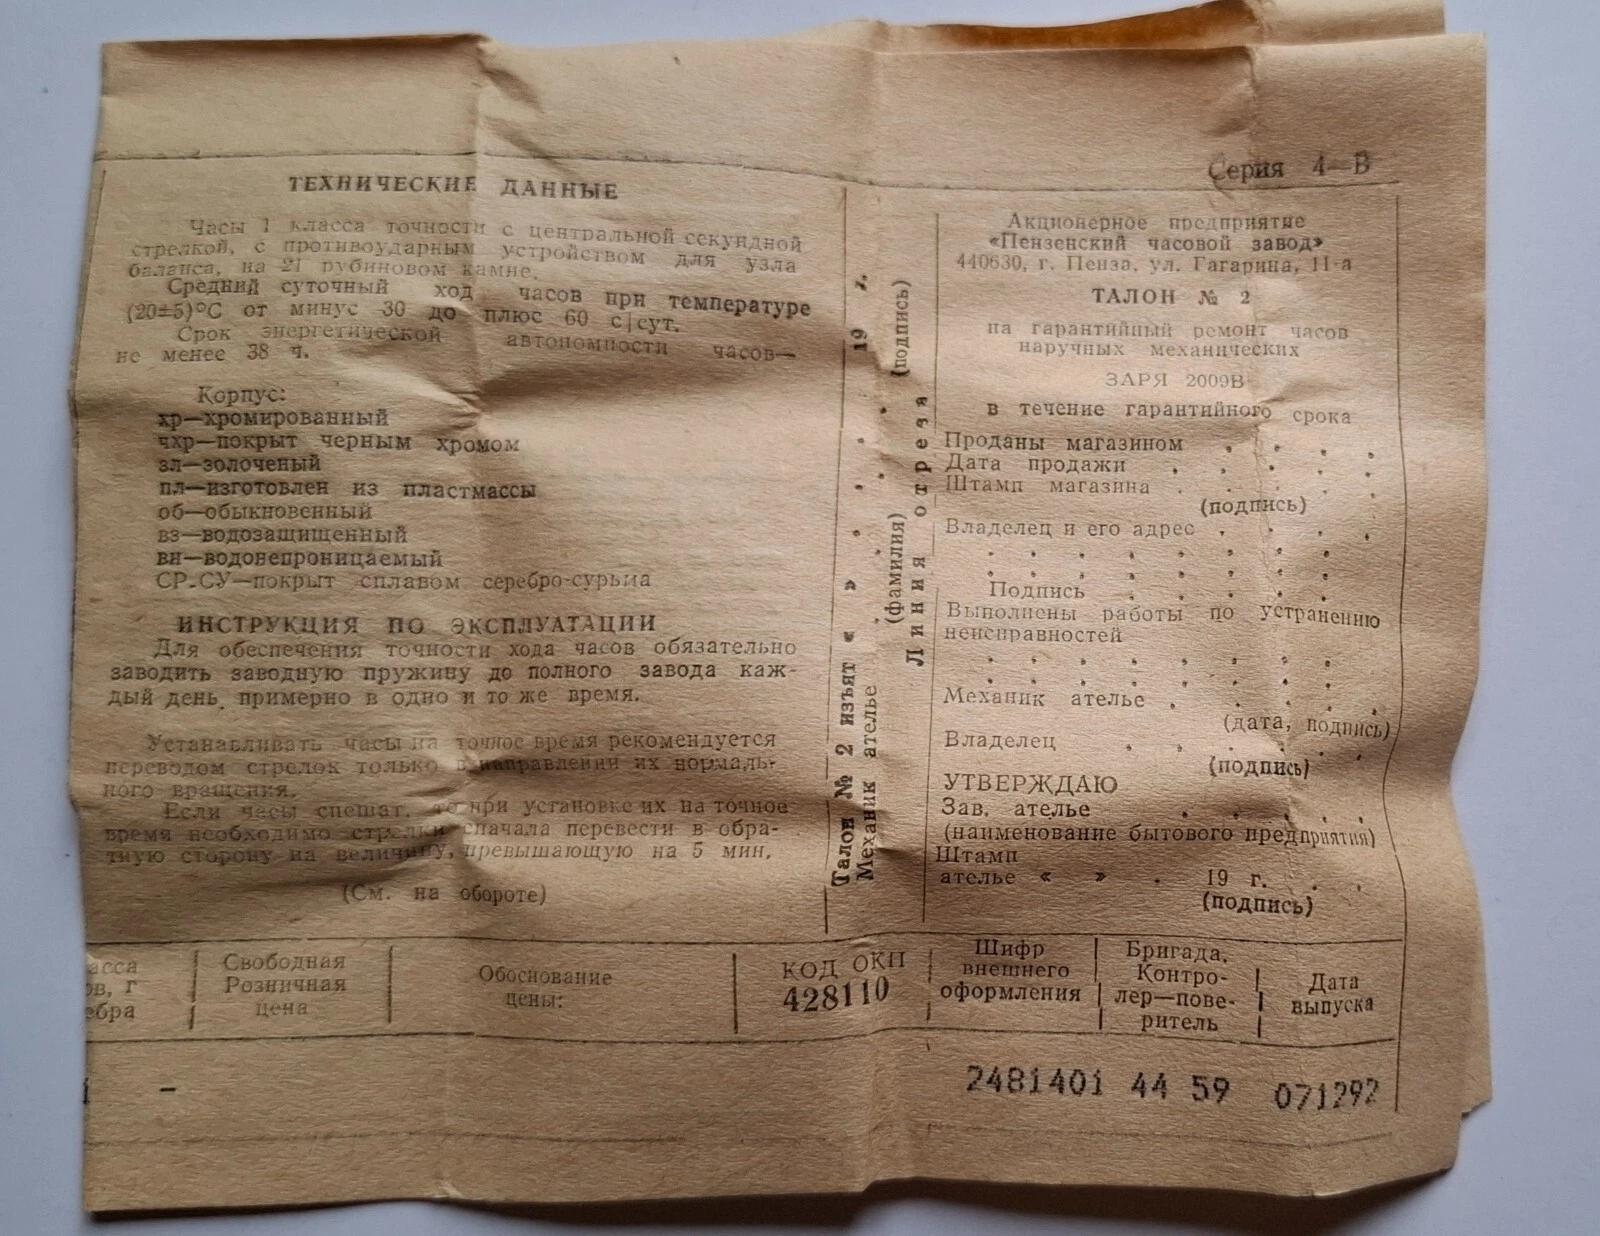 Серия 4—В
ТЕХНИЧЕСКИЕ ДАННЫЕ
Часы 1 класса точности с центральной секундной
стрелкой, с противоударным устройством для узла
баланса, на 21 рубиновом камне.
Средний суточный ход часов при температуре
(20±5)°С от минус 30 до плюс 60 с/сут.
Срок энергетической автономности часов—
не менее 38 ч.
Корпус:
хр—хромированный
чхр—покрыт черным хромом
зл—золоченый
пл—изготовлен из пластмассы
об—обыкновенный
вз—водозащищенный
вн—водонепроницаемый
СР.СУ—покрыт сплавом серебро-сурьма
ИНСТРУКЦИЯ ПО ЭКСПЛУАТАЦИИ
Для обеспечения точности хода часов обязательно
заводить заводную пружину до полного завода каж-
дый день, примерно в одно и то же время.
Устанавливать часы на точное время рекомендуется
переводом стрелок только в направлении их нормаль-
ного вращения.
Если часы спешат, то при установке их на точное
время необходимо стрелки сначала перевести в обра-
тную сторону на величину, превышающую на 5 мин.
(См. на обороте)
Талон № 2 изъят « » 19 г.
Механик ателье
(фамилия) (подпись)
Линия отреза
Акционерное предприятие
«Пензенский часовой завод»
440630, г. Пенза, ул. Гагарина, 11-а
ТАЛОН № 2
на гарантийный ремонт часов
наручных механических
ЗАРЯ 2009В
в течение гарантийного срока
Проданы магазином . . . .
Дата продажи . . . . .
Штамп магазина . . . . .
(подпись)
Владелец и его адрес . . . .
. . . . . . . .
. . . . . . . .
Подпись . . . . .
Выполнены работы по устранению
неисправностей
. . . . . . . .
. . . . . . . .
Механик ателье . . . . .
(дата, подпись)
Владелец . . . . . .
(подпись)
УТВЕРЖДАЮ
Зав. ателье . . . .
(наименование бытового предприятия)
Штамп
ателье « » . 19 г. . .
(подпись)
асса
ов, г
ебра
Свободная
Розничная
цена
Обоснование
цены:
КОД ОКП
428110
Шифр
внешнего
оформления
Бригада.
Контро-
лер—пове-
ритель
Дата
выпуска
–
2481401 44 59 071292